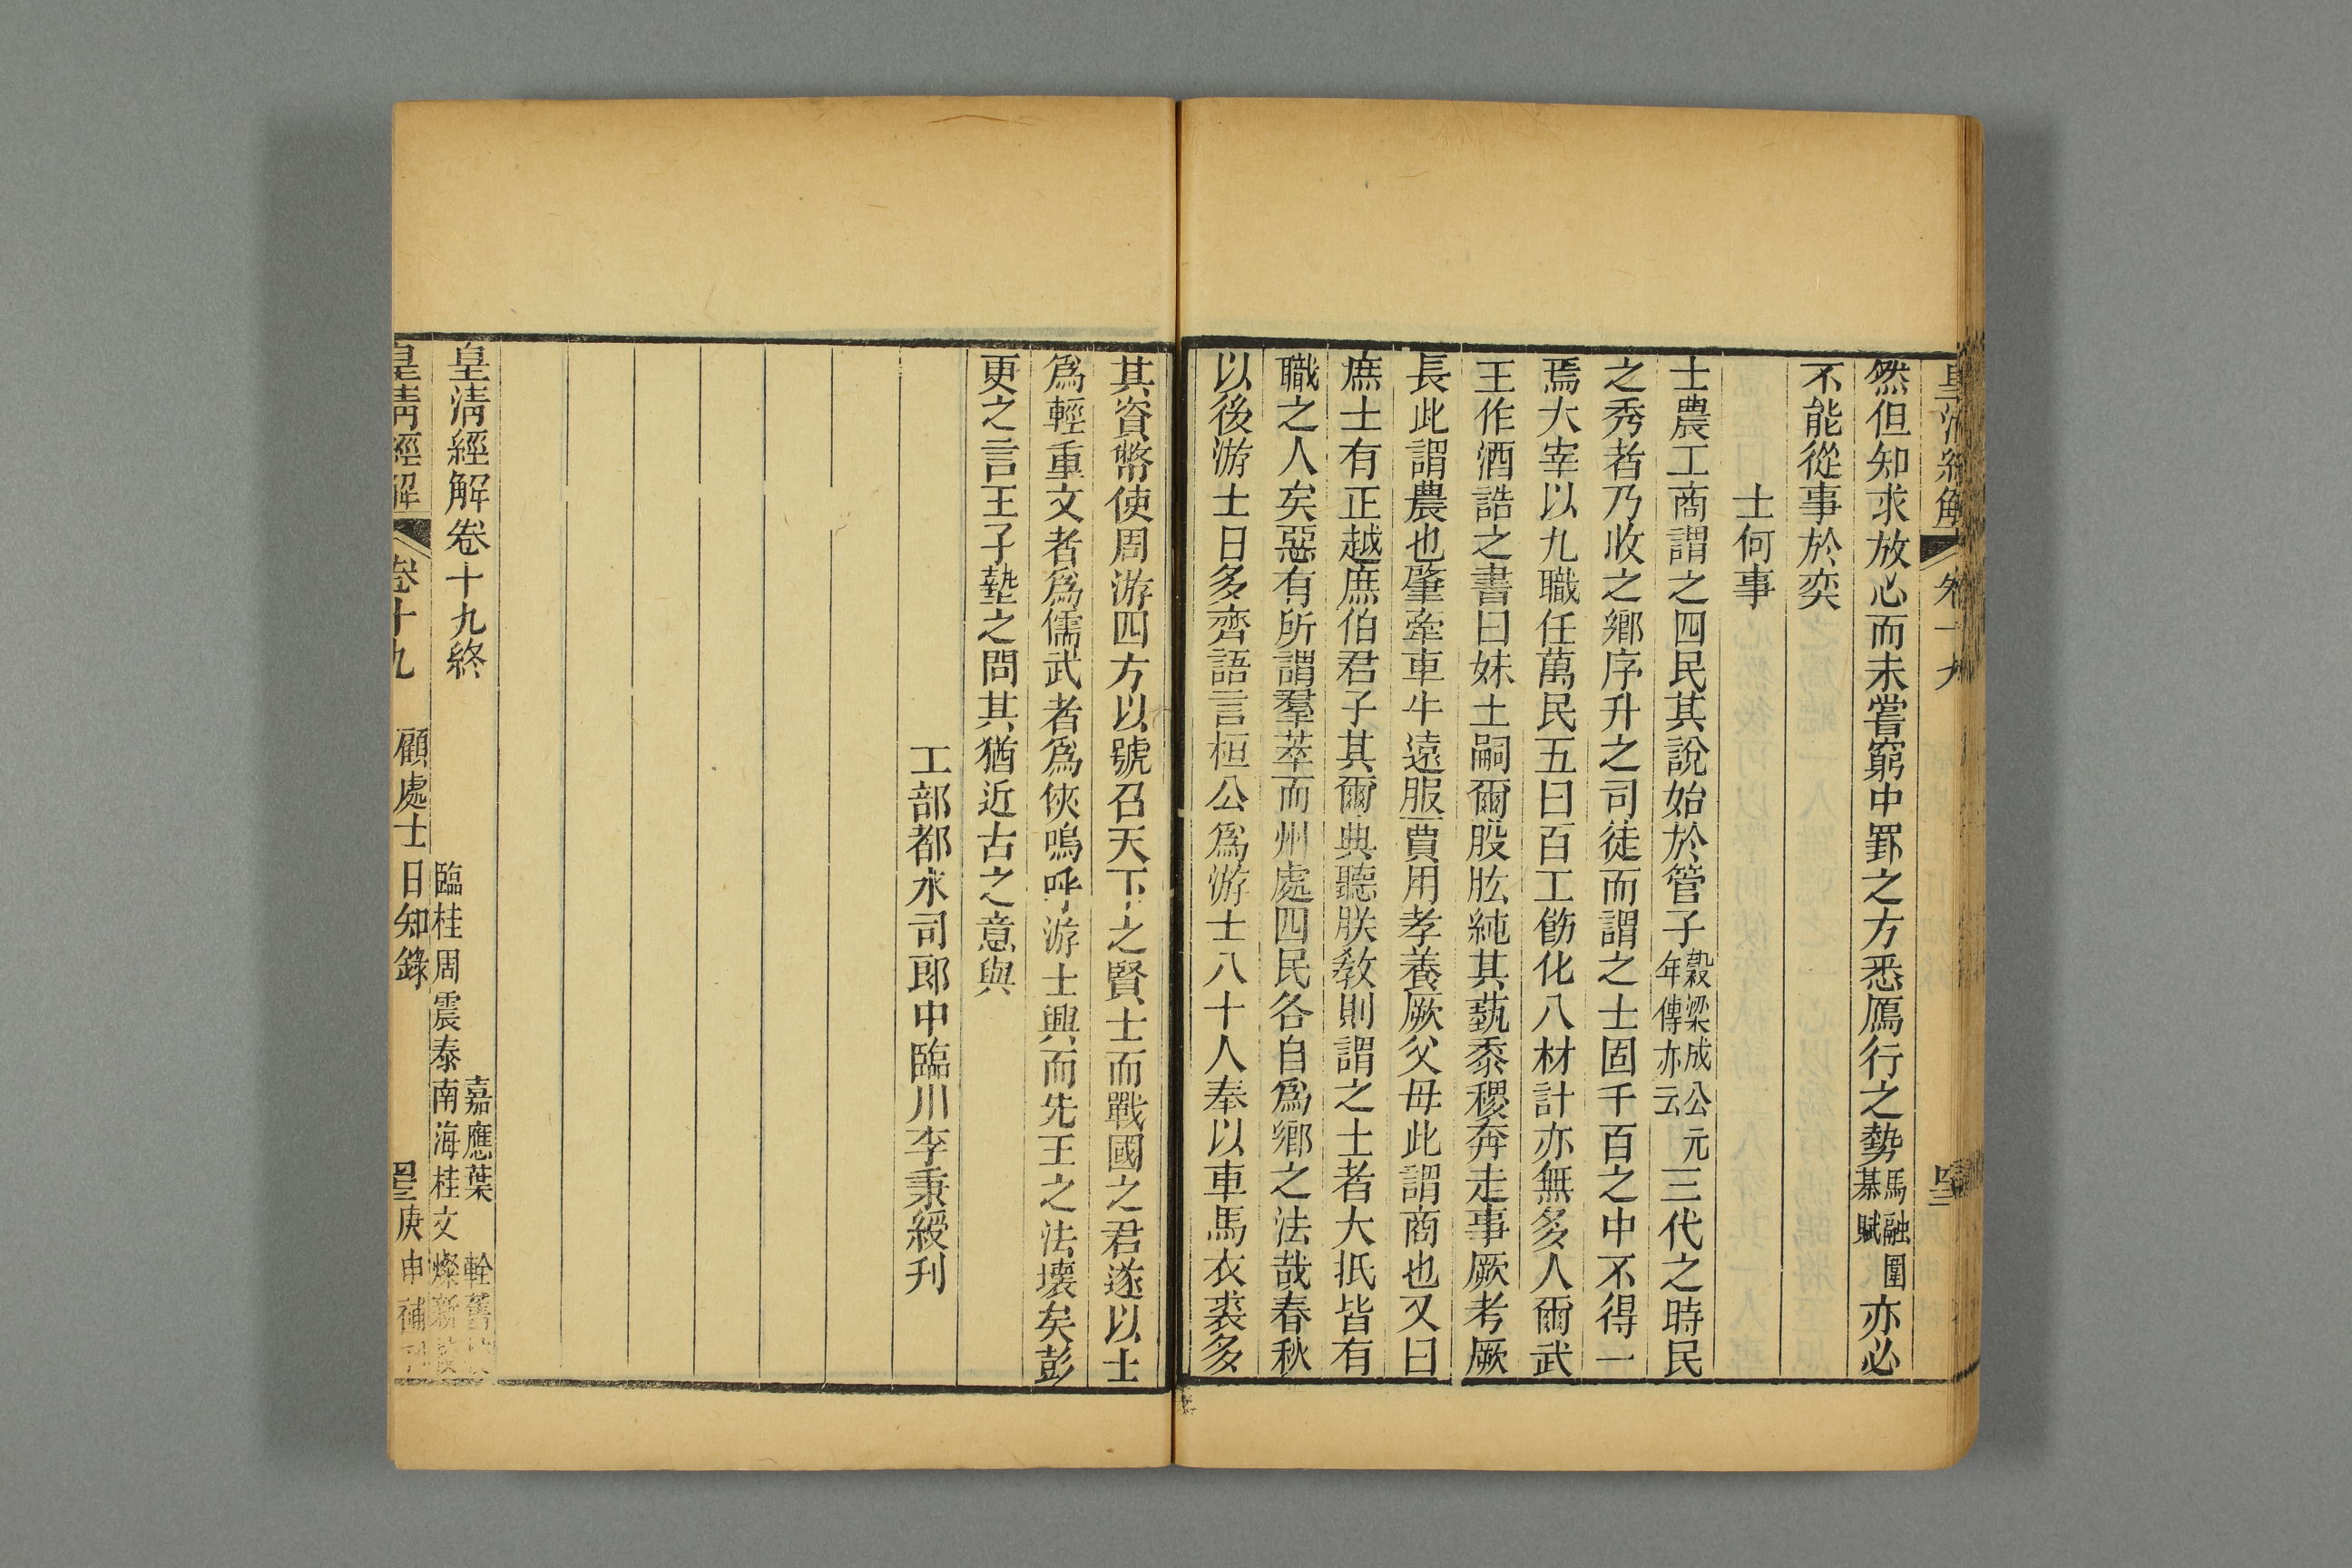 然但知求放心而未嘗窮中罫之方悉鴈行之勢馬融圍棊賦亦必
不能從事於奕
士何事
士農工商謂之四民其說始於管子穀梁成公元年傳亦云三代之時民
之秀者乃收之鄉序升之司徒而謂之士固千百之中不得一
焉大宰以九職任萬民五曰百工飭化八材計亦無多人爾武
王作酒誥之書曰妹土嗣爾股肱純其蓺黍稷奔走事厥考厥
長此謂農也肇牽車牛遠服賈用孝養厥父母此謂商也又曰
庶士有正越庶伯君子其爾典聽朕敎則謂之士者大抵皆有
職之人矣惡有所謂羣萃而州處四民各自爲鄉之法哉春秋
以後游士日多齊語言桓公爲游士八十人奉以車馬衣裘多
其資幣使周游四方以號召天下之賢士而戰國之君遂以士
爲輕重文者爲儒武者爲俠嗚呼游士興而先王之法壞矣彭
更之言王子墊之問其猶近古之意與
工部都水司郎中臨川李秉綬刊
皇淸經解卷十九終
嘉應葉軨舊校
臨桂周震泰南海桂文燦新校
皇淸經解 卷十九 顧處士日知錄 庚申補刊